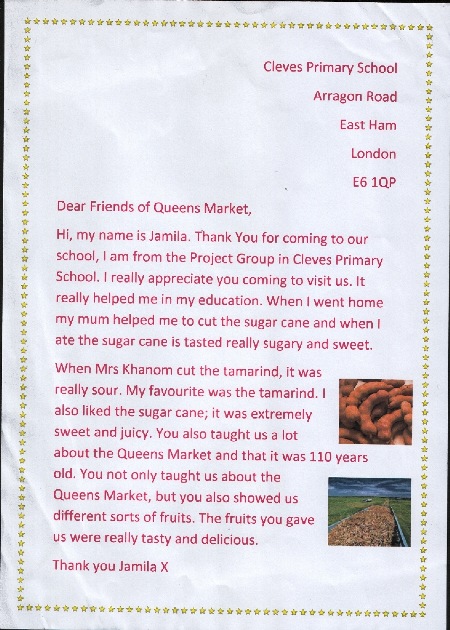 Cleves Primary School
Arragon Road
East Ham
London
E6 1QP
Dear Friends of Queens Market,
Hi, my name is Jamila. Thank You for coming to our
school, I am from the Project Group in Cleves Primary
School. I really appreciate you coming to visit us. It
really helped me in my education. When I went home
my mum helped me to cut the sugar cane and when I
ate the sugar cane is tasted really sugary and sweet.
When Mrs Khanom cut the tamarind, it was
really sour. My favourite was the tamarind. I
also liked the sugar cane; it was extremely
sweet and juicy. You also taught us a lot
about the Queens Market and that it was 110 years
old. You not only taught us about the
Queens Market, but you also showed us
different sorts of fruits. The fruits you gave
us were really tasty and delicious.
Thank you Jamila X